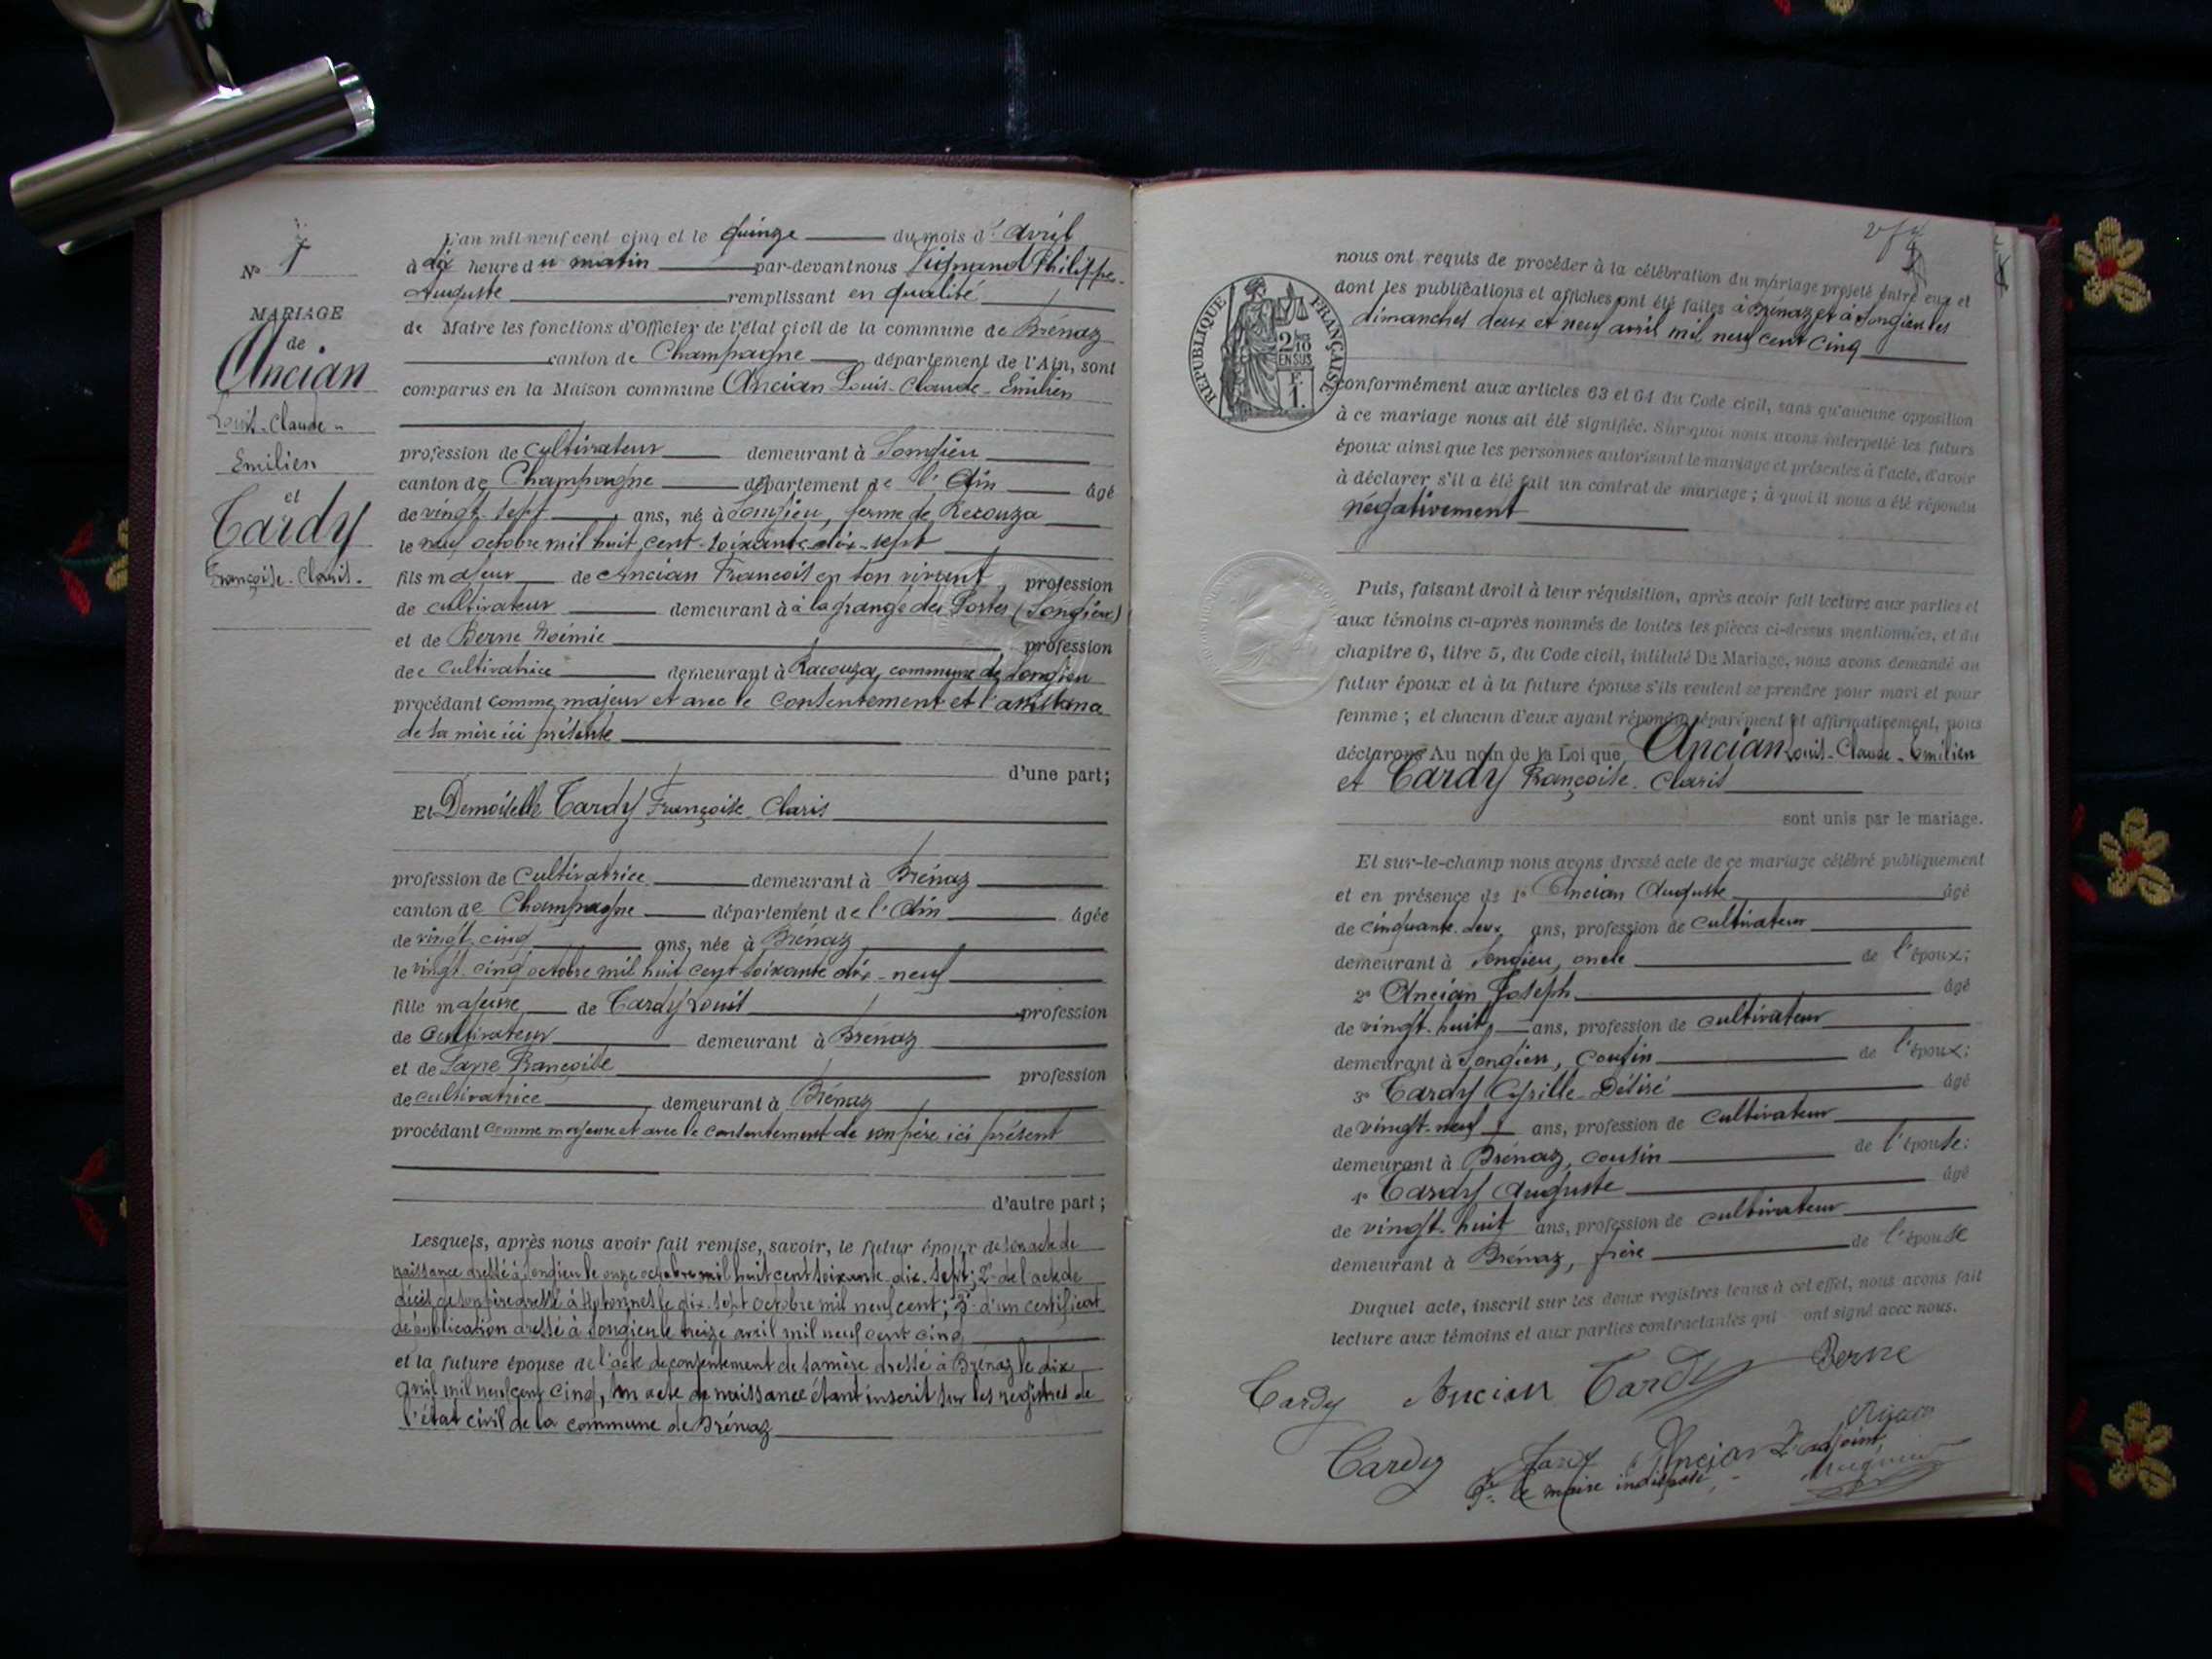 N° 1
MARIAGE
de
Ancian
Louis-Claude-
Emilien
et
Tardy
Françoise-Claris.
L'an mil neuf cent cinq et le quinze du mois d'avril
à dix heure du matin par-devant nous Philippe-
Auguste remplissant en qualité
de Maire les fonctions d'Officier de l'état civil de la commune de Brénaz
canton de Champagne département de l'Ain, sont
comparus en la Maison commune Ancian Louis-Claude-Emilien
profession de cultivateur demeurant à Songieu
canton de Champagne département de l'Ain âgé
de vingt-sept ans, né à Songieu, ferme de
le neuf octobre mil huit cent-soixante-dix-sept
fils majeur de Ancian François en son vivant, profession
de cultivateur demeurant à à la grange des Portes (Songieu)
et de Berne Noémie profession
de cultivatrice demeurant à Racouza, commune de Songieu
procédant comme majeur et avec le consentement et l'assistance
de sa mère ici présente
d'une part;
Et Demoiselle Tardy Françoise-Claris
profession de cultivatrice demeurant à Brénaz
canton de Champagne département de l'Ain âgée
de vingt-cinq ans, née à Brénaz
le vingt-cinq octobre mil huit cent soixante dix-neuf
fille majeure de Tardy Louis profession
de cultivateur demeurant à Brénaz
et de Françoise profession
de cultivatrice demeurant à Brénaz
procédant comme majeure et avec le consentement de son père ici présent
d'autre part;
Lesquels, après nous avoir fait remise, savoir, le futur époux de son acte de
naissance dressé à Songieu le onze octobre mil huit cent soixante-dix-sept; 2° de l'acte de
décès de son père dressé à Hotonnes le dix-sept octobre mil neuf cent; 3° d'un certificat
de publication dressé à Songieu le treize avril mil neuf cent cinq
et la future épouse de l'acte de consentement de sa mère dressé à Brénaz le dix
avril mil neuf cent cinq, son acte de naissance étant inscrit sur les registres de
l'état civil de la commune de Brénaz
REPUBLIQUE FRANÇAISE
2/10
EN SUS
F.
1.
nous ont requis de procéder à la célébration du mariage projeté entre eux et
dont les publications et affiches ont été faites à Brénaz et à Songieu les
dimanches deux et neuf avril mil neuf cent cinq
conformément aux articles 63 et 64 du Code civil, sans qu'aucune opposition
à ce mariage nous ait été signifiée. Sur quoi nous avons interpellé les futurs
époux ainsi que les personnes autorisant le mariage et présentes à l'acte, d'avoir
à déclarer s'il a été fait un contrat de mariage; à quoi il nous a été répondu
négativement
Puis, faisant droit à leur réquisition, après avoir fait lecture aux parties et
aux témoins ci-après nommés de toutes les pièces ci-dessus mentionnées, et du
chapitre 6, titre 5, du Code civil, intitulé Du Mariage, nous avons demandé au
futur époux et à la future épouse s'ils veulent se prendre pour mari et pour
femme; et chacun d'eux ayant répondu séparément et affirmativement, nous
déclarons Au nom de la Loi que Ancian Louis-Claude-Emilien
et Tardy Françoise-Claris
sont unis par le mariage.
Et sur-le-champ nous avons dressé acte de ce mariage célébré publiquement
et en présence de 1° Ancian Auguste âgé
de cinquante-deux ans, profession de cultivateur
demeurant à Songieu, oncle de l'époux;
2° Ancian Joseph âgé
de vingt-huit ans, profession de cultivateur
demeurant à Songieu, cousin de l'époux;
3° Tardy Cyrille-Désiré âgé
de vingt-neuf ans, profession de cultivateur
demeurant à Brénaz, cousin de l'épouse;
4° Tardy Auguste âgé
de vingt-huit ans, profession de cultivateur
demeurant à Brénaz, frère de l'épouse
Duquel acte, inscrit sur les deux registres tenus à cet effet, nous avons fait
lecture aux témoins et aux parties contractantes qui ont signé avec nous.
Tardy Ancian Tardy Berne
Tardy Tardy Ancian L'adjoint,
Pr. le maire indisposé,